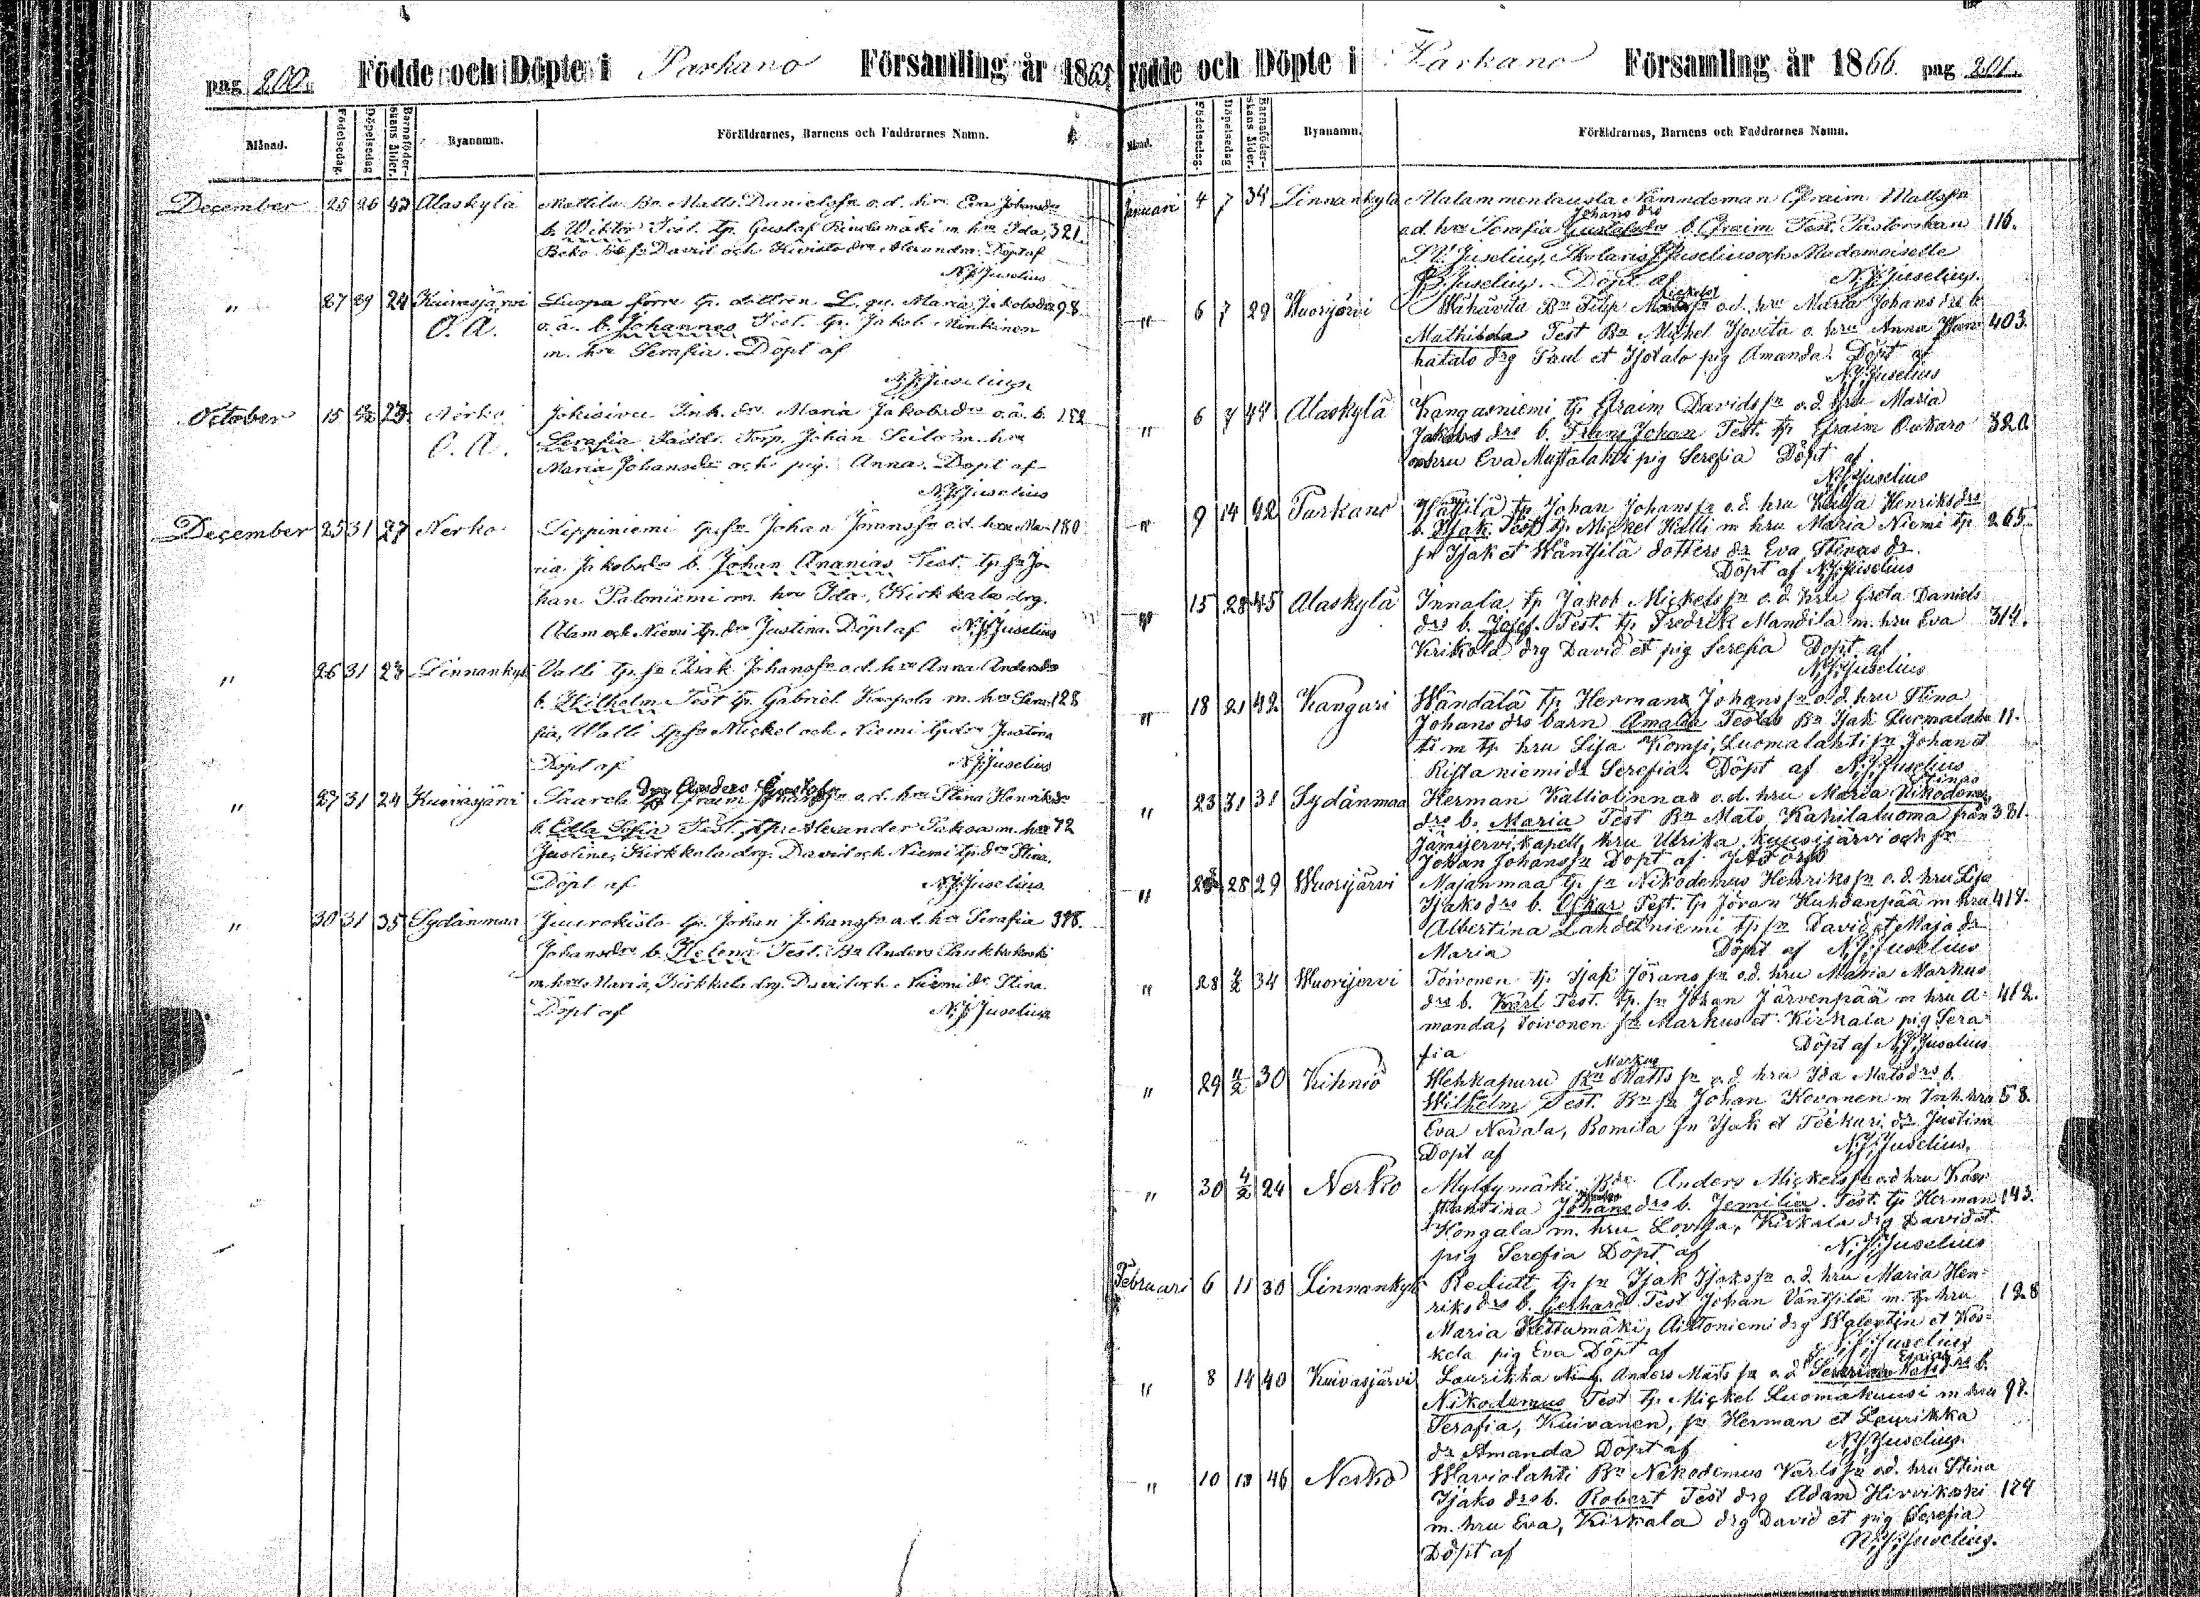 pag 200. Födde och Döpte i Parkano Församling år 1865.
Månad. Födelsedag. Döpelsedag Barnaföderskans ålder. Byanamn. Föräldrarnes, Barnens och Faddrarnes Namn.
December 25 26 43 Alaskylä Mattila Bn Matts Danielsson o.d. hru Eva Johansdr
b. Wiktor Test. tp. Gustaf Rindamäki m. hru Ida, 321.
David och Kivisto dr Alexandra. Döpt af
N.J. Juselius
" 27 29 24 Kuivasjärvi Luopa förre tp. dottren L. qv. Maria Jakobsdr 98.
O. Ä. o.ä. b. Johannes Test. tp. Jakob Minkinen
m. hru Serafia. Döpt af
N.J. Juselius
October 15 23 Nerko Jokisivu Inh. dr Maria Jakobsdr o.ä. b. 152
O. Ä. Serafia Faddr. Torp. Johan Seilo m. hru
Maria Johansdr och pig. Anna. Döpt af
N.J. Juselius
December 25 31 27 Nerko Seppiniemi tp. sn Johan Jöransson o.d. hru Ma- 180
ria Jakobsdr b. Johan Ananias Test. tp sn Jo-
han Paloniemi m. hru Ida, Kirkkala drg.
Adam och Niemi tp. dr Justina. Döpt af N.J. Juselius
" 26 31 23 Linnankylä Valli tp. sn Isak Johansson o.d. hru Anna Andersdr
b. Wilhelm Test tp. Gabriel Kaapola m. hru Sera- 128
fia, Walli tp sn Mickel och Niemi tp dr Justina
Döpt af N.J. Juselius
drg Anders Gustafs
" 27 31 24 Kuivasjärvi Saarela tp Efraim Johansson o.d. hru Stina Henriksdr
b. Edla Sofia Test. tp. Alexander Saksa m. hru 72
Justina, Kirkkala drg. David och Niemi tp. dr Stina.
Döpt af N.J. Juselius
" 30 31 35 Sydänmaa Juurokisto tp. Johan Johansson o.d. hru Serafia 398.
Johansdr b. Helena Test. Bn Anders Laukkakoski
m. hru Maria, Kirkkala drg. David och Niemi dr Stina.
Döpt af N.J. Juselius
Födde och Döpte i Parkano Församling år 1866. pag 201.
Månad. Födelsedag. Döpelsedag Barnaföderskans ålder. Byanamn. Föräldrarnes, Barnens och Faddrarnes Namn.
Januari 4 7 34 Linnankylä Alalammentausta Nämndeman Efraim Mattsson
Johans drs
o.d. hru Serafia Gustafsdr b. Efraim Test. Pastorskan 116.
Juselius, Skolaris Juselius och Mademoiselle
Juselius. Döpt af N.J. Juselius.
Mickels
" 6 7 29 Wuorijärvi Wähävita Bn Filip Matssn o.d. hru Maria Johans drs b.
Mathilda Test Bn Mickel Isovita o. hru Anna Wan- 403.
hatalo drg Paul et Isotalo pig Amanda. Döpt af
N.J. Juselius
" 6 7 47 Alaskylä Kangasniemi tp Efraim Davidssn o.d. hru Maria
Jakobs drs b. Frans Johan Test. tp Efraim Oukaro 320
m hru Eva Mustalahti pig Serefia Döpt af
N.J. Juselius
" 9 14 42 Parkano Wäntsilä tp Johan Johanssn o.d. hru Kaisa Henriksdrs
b. Isak Test tp Mickel Halli m hru Maria Niemi tp 265.
sn Isak et Wäntsilä dotters dr Eva Stinas dr.
Döpt af N.J. Juselius
" 15 28 45 Alaskylä Innala tp Jakob Mickels sn o.d. hru Greta Daniels
drs b. Josef. Test. tp Fredrik Mandila m. hru Eva 314.
Krikola drg David et pig Serefia Döpt af
N.J. Juselius
" 18 21 42 Kangari Wändälä tp Herman Johans sn o.d. hru Stina
Johans drs barn Amalia Testes Bn Isak Luomalah- 11.
ti m tp hru Lisa Kompi, Luomalahti sn Johan et
Ristaniemi dr Serefia. Döpt af N.J. Juselius
Stinas
" 23 31 31 Sydänmaa Herman Kalliolinna o.d. hru Maria Nikodemus
drs b. Maria Test Bn Mats Kahilaluoma från 381.
Jämijervi Kapell, hru Ulrika Kuusijärvi och sn
Johan Johans sn Döpt af
" 28 29 Wuorijärvi Majanmaa tp. sn Nikodemus Henriks sn o.d. hru Lisa
Isaks drs b. Oskar Test. tp Jöran Kuhdanpää m hru 417.
Albertina Lahdenniemi tp sn David et Maja dr
Maria Döpt af N.J. Juselius
" 28 34 Wuorijervi Toivonen tp Isak Jörans sn o.d. hru Maria Markus
drs b. Karl Test. tp. sn Johan Järvenpää m hru A- 412.
manda, Toivonen sn Markus et Kirkala pig Sera-
fia Döpt af N.J. Juselius
Markus
" 29 30 Kihniö Wehkapuru Bn Matts sn o.d hru Ida Mats drs b.
Wilhelm Test. Bn sn Johan Kovanen m Inh. hru 58.
Eva Nevala, Romila sn Isak et dr Justina
Döpt af N.J. Juselius.
" 30 4/2 24 Nerko Myllymäki Bde Anders Mickels sn o.d hru Kon-
stantina Johans drs b. Jemilia. Test. tp Herman 143.
Kongala m. hru Lovisa, Kirkala drg David et
pig Serefia Döpt af N.J. Juselius
Februari 6 11 30 Linnankylä Redutt tp sn Isak Isaks sn o.d. hru Maria Hen-
riks drs b. Gerhard Test Johan Väntsilä m. tp hru 128
Maria Kettumäki, Aittoniemi drg Walentin et Kos-
kela pig Eva Döpt af N.J. Juselius
" 8 14 40 Kuivasjärvi Laurikka Anders Mats sn o.d drs b.
Nikodemus Test tp Mickel Luomakuusi m hru 97.
Serafia, Kuivanen, sn Herman et Laurikka
dr Amanda Döpt af N.J. Juselius.
" 10 18 46 Nerko Waviolahti Bn Nikodemus Karls sn o.d. hru Stina
Isaks drs b. Robert Test drg Adam Hirvikoski 174
m. hru Eva, Kirkala drg David et pig Serefia
Döpt af N.J. Juselius.